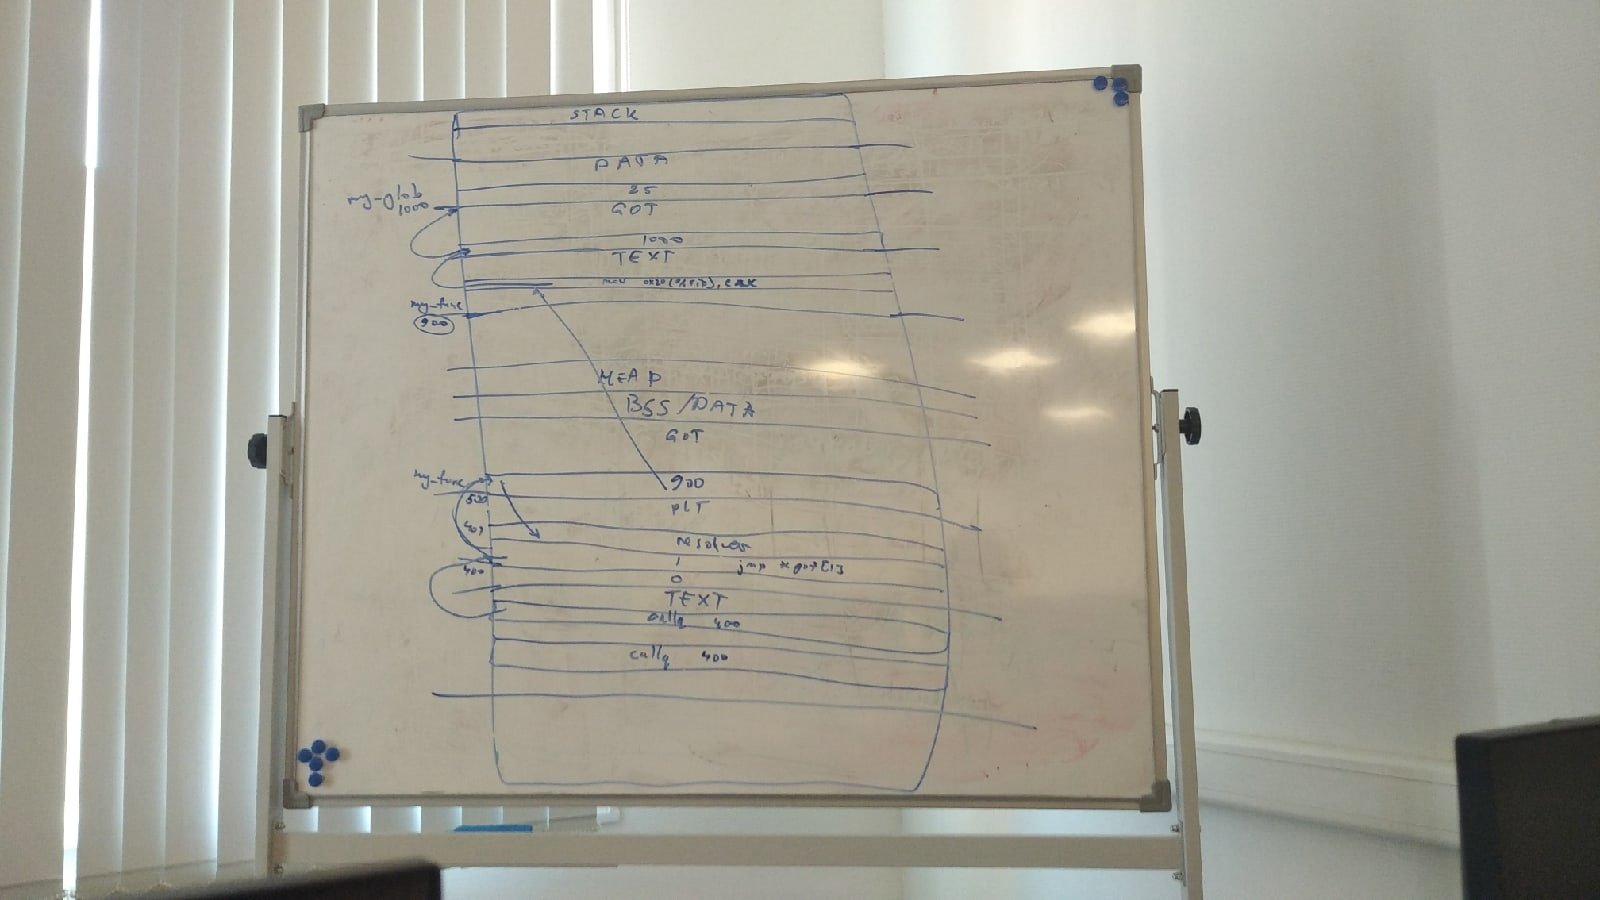 STACK
DATA
25
my-glob
1000
GOT
1000
TEXT
my-func
900
HEAP
BSS/DATA
GOT
my-func
900
500
PLT
resolver
1 jmp *got[1]
400
0
TEXT
callq 400
callq 400